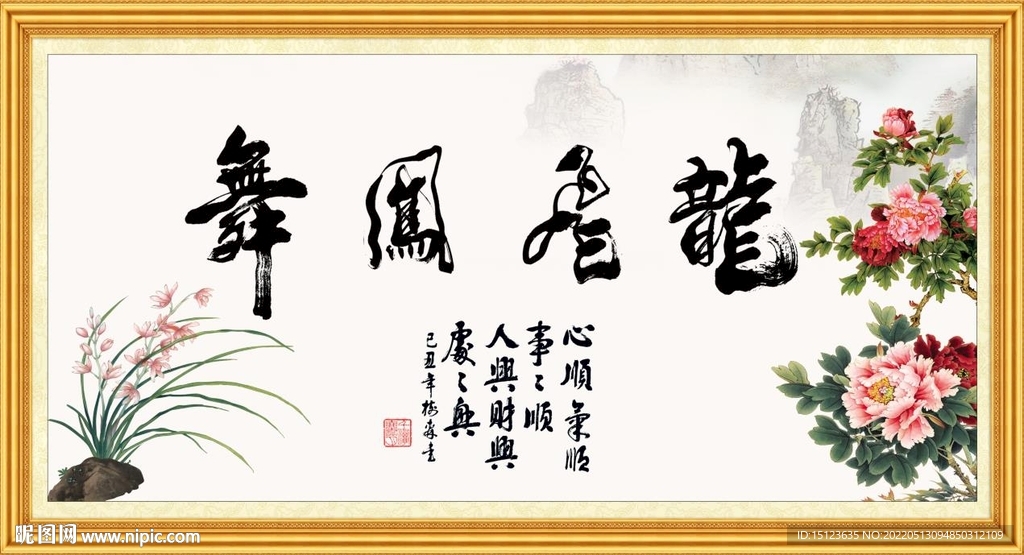 龍飛鳳舞
心順氣順
事〻順
人興財興
處〻興
己丑年梅森書
昵图网 www.nipic.com
ID:15123635 NO:20220513094850312109